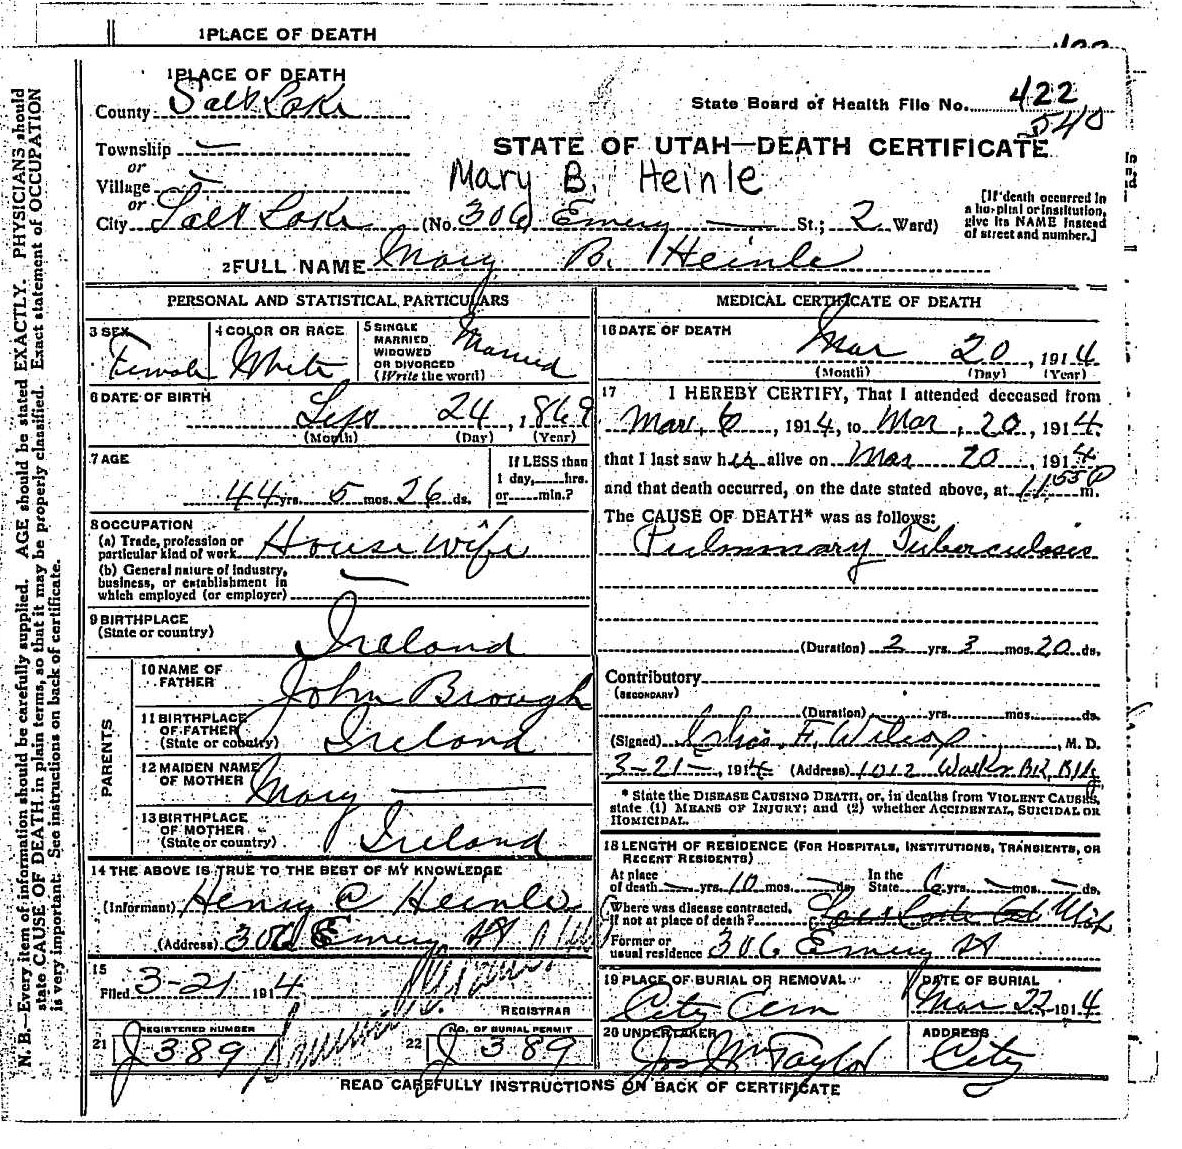 1 PLACE OF DEATH
1 PLACE OF DEATH
County Salt Lake
State Board of Health File No. 422
540
Township —
or
Village —
or
City Salt Lake
STATE OF UTAH—DEATH CERTIFICATE
Mary B. Heinle
(No. 306 Emery — St.; 2 Ward)
[If death occurred in
a hospital or institution,
give its NAME instead
of street and number.]
2 FULL NAME Mary B. Heinle
PERSONAL AND STATISTICAL PARTICULARS
3 SEX
Female
4 COLOR OR RACE
White
5 SINGLE
MARRIED
WIDOWED
OR DIVORCED
(Write the word)
Married
6 DATE OF BIRTH
Sep 24, 1869
(Month) (Day) (Year)
7 AGE
44 yrs. 5 mos. 26 ds.
If LESS than
1 day,......hrs.
or......min.?
8 OCCUPATION
(a) Trade, profession or
particular kind of work House wife
(b) General nature of industry,
business, or establishment in
which employed (or employer) —
9 BIRTHPLACE
(State or country)
Ireland
PARENTS
10 NAME OF
FATHER
John Brough
11 BIRTHPLACE
OF FATHER
(State or country)
Ireland
12 MAIDEN NAME
OF MOTHER
Mary —
13 BIRTHPLACE
OF MOTHER
(State or country)
Ireland
14 THE ABOVE IS TRUE TO THE BEST OF MY KNOWLEDGE
(Informant) Henry C Heinle
(Address) 306 Emery St
15
Filed 3-21 1914
REGISTRAR
21 REGISTERED NUMBER
J 389
22 NO. OF BURIAL PERMIT
J 389
MEDICAL CERTIFICATE OF DEATH
16 DATE OF DEATH
Mar 20, 1914
(Month) (Day) (Year)
17 I HEREBY CERTIFY, That I attended deceased from
Mar. 6, 1914, to Mar, 20, 1914.
that I last saw her alive on Mar 20, 1914
and that death occurred, on the date stated above, at 11 55 P m.
The CAUSE OF DEATH* was as follows:
Pulmonary Tuberculosis
(Duration) 2 yrs. 3 mos. 20 ds.
Contributory
(SECONDARY)
(Duration) yrs. mos. ds.
(Signed) F. Wilcox, M. D.
3-21-, 1914 (Address) 1012 Walker Bk Bldg
* State the DISEASE CAUSING DEATH, or, in deaths from VIOLENT CAUSES,
state (1) MEANS OF INJURY; and (2) whether ACCIDENTAL, SUICIDAL OR
HOMICIDAL.
18 LENGTH OF RESIDENCE (FOR HOSPITALS, INSTITUTIONS, TRANSIENTS, OR
RECENT RESIDENTS)
At place
of death — yrs. 10 mos. — ds.
In the
State 6 yrs. — mos. — ds.
Where was disease contracted,
if not at place of death?
Former or
usual residence 306 Emery St
19 PLACE OF BURIAL OR REMOVAL
City Cem
DATE OF BURIAL
Mar 22 1914
20 UNDERTAKER
Jos Wm Taylor
ADDRESS
City
READ CAREFULLY INSTRUCTIONS ON BACK OF CERTIFICATE
N. B.—Every item of information should be carefully supplied. AGE should be stated EXACTLY. PHYSICIANS should
state CAUSE OF DEATH in plain terms, so that it may be properly classified. Exact statement of OCCUPATION
is very important. See instructions on back of certificate.